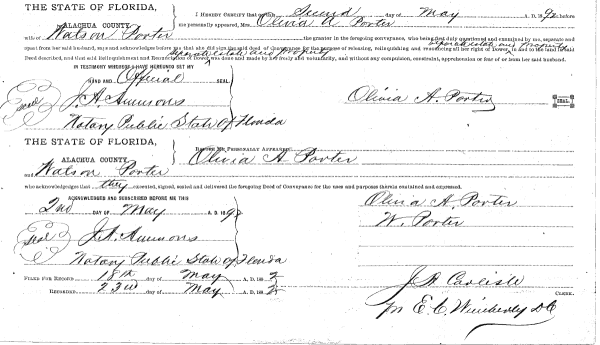 THE STATE OF FLORIDA,
ALACHUA COUNTY.
I HEREBY CERTIFY that on this Second day of May A. D. 1892 before
me personally appeared, Mrs. Olivia A. Porter
wife of Watson Porter the grantor in the foregoing conveyance, who being first duly questioned and examined by me, separate and
separate estate and property
apart from her said husband, says and acknowledges before me that she did sign the said deed of Conveyance for the purpose of releasing, relinquishing and renouncing all her right of Dower, in and to the land therein
separate estate and property
Deed described, and that said Relinquishment and Renunciation of Dower was done and made by her freely and voluntarily, and without any compulsion, constraint, apprehension or fear of or from her said husband.
IN TESTIMONY WHEREOF I HAVE HEREUNTO SET MY
HAND AND Official SEAL.
Seal
J. A. Ammons
Olivia A. Porter SEAL.
Notary Public State Of Florida
THE STATE OF FLORIDA,
ALACHUA COUNTY.
BEFORE ME PERSONALLY APPEARED Olivia A Porter
and Watson Porter
who acknowledges that they executed, signed, sealed and delivered the foregoing Deed of Conveyance for the uses and purposes therein contained and expressed.
ACKNOWLEDGED AND SUBSCRIBED BEFORE ME THIS
2nd DAY OF May A. D. 1892
Olivia A. Porter
W. Porter
Seal
J. A. Ammons
Notary Public State of Florida
FILED FOR RECORD 18th day of May A. D. 1892
RECORDED 23rd day of May A. D. 1892
J A Carlisle CLERK.
pr E. C. Wimberly D C